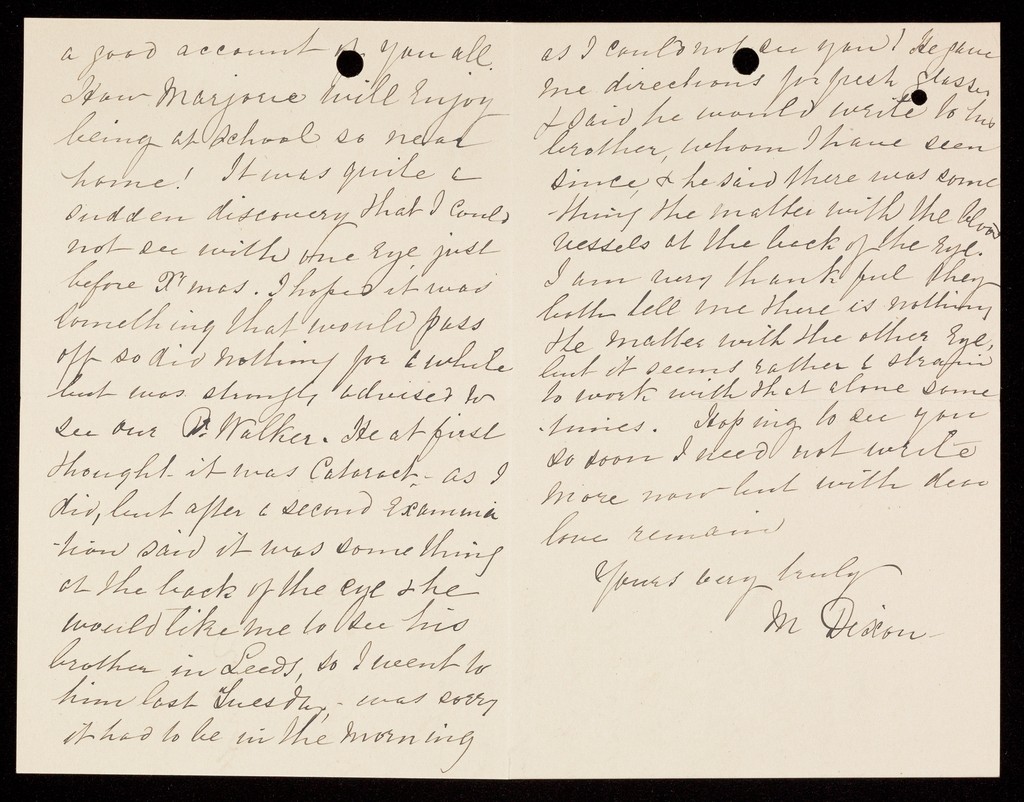 a good account of you all.
How Marjorie will enjoy
being at school so near
home! It was quite a
sudden discovery that I could
not see with one eye just
before Xmas. I hoped it was
something that would pass
off so did nothing for a while
but was strongly advised to
see our Dr Walker. He at first
thought it was Cataract - as I
did, but after a second examina
-tion said it was something
at the back of the eye & he
would like me to see his
brother in Leeds, so I went to
him last Tuesday, - was sorry
it had to be in the morning
as I could not see you! He gave
me directions for fresh glasses
& said he would write to his
brother, whom I have seen
since, & he said there was some
-thing the matter with the blood
vessels at the back of the eye.
I am very thankful they
both tell me there is nothing
the matter with the other eye,
but it seems rather a strain
to work with that alone some
-times. Hoping to see you
so soon I need not write
more now but with dear
love remain
Yours very truly
M Dixon -